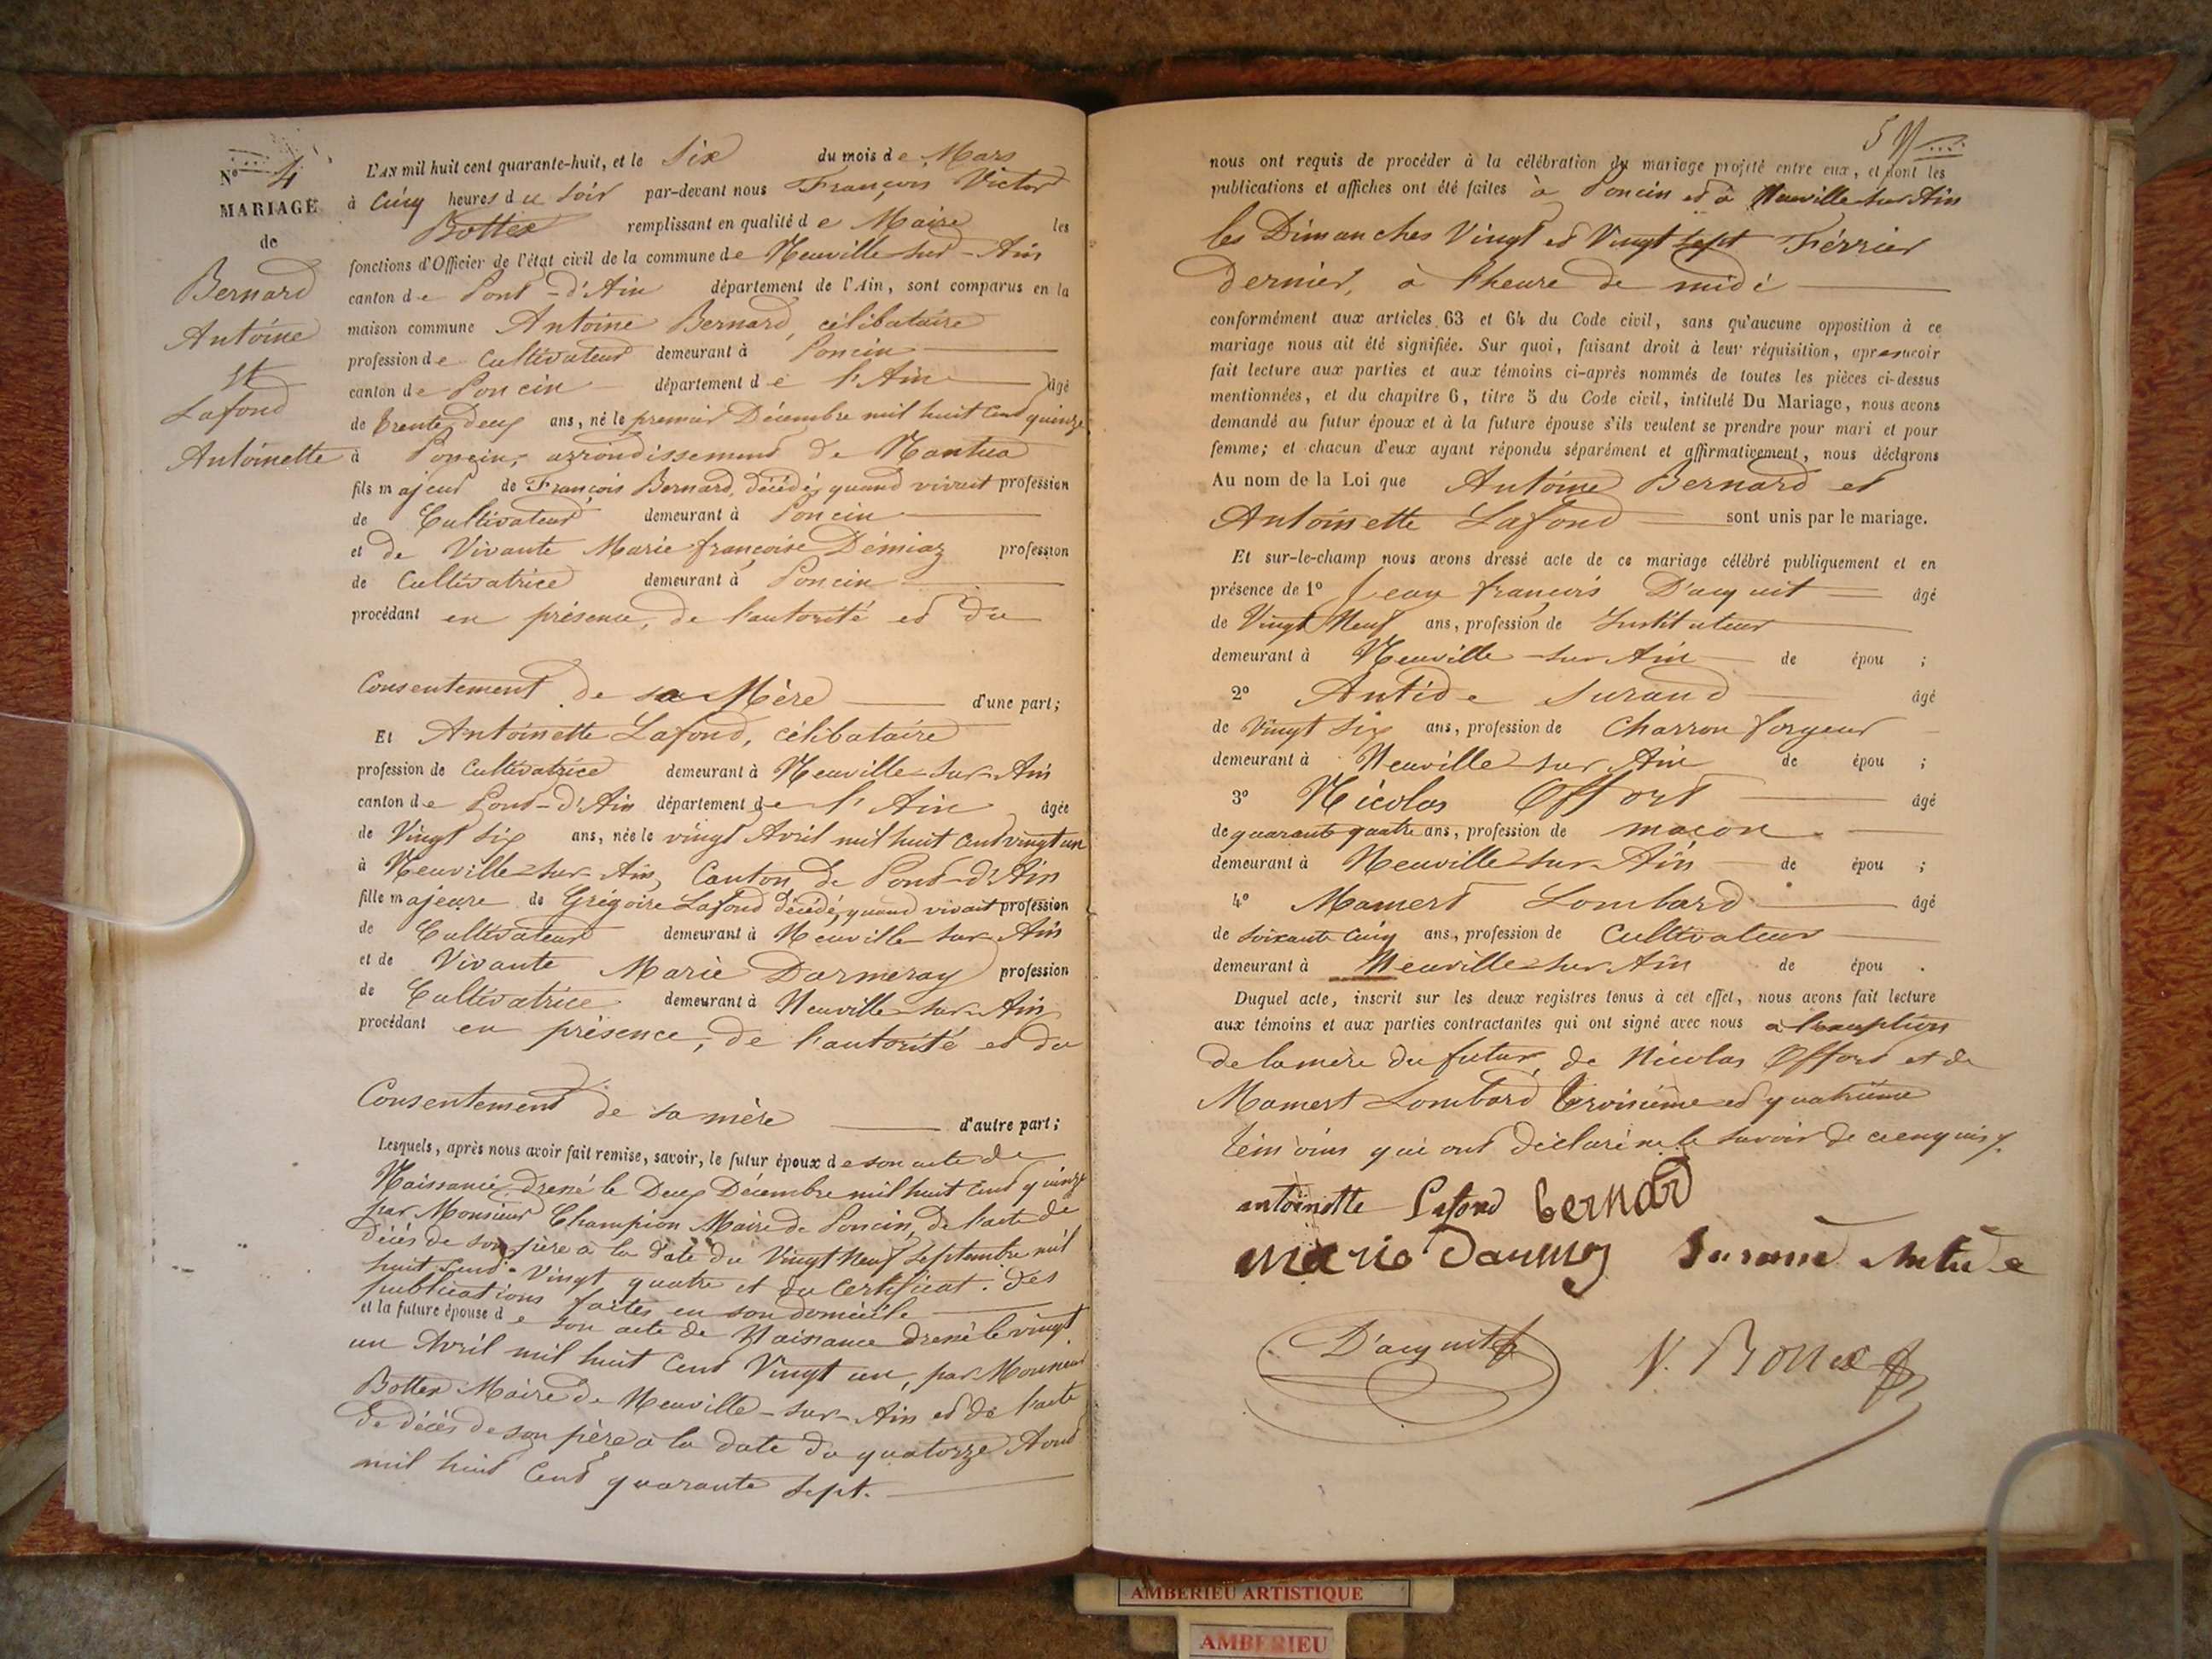 N° 4
MARIAGE
de
Bernard
Antoine
et
Lafond
Antoinette
L'AN mil huit cent quarante-huit, et le Six du mois de Mars
à Cinq heures du Soir par-devant nous François Victor
Bottex remplissant en qualité de Maire les
fonctions d'Officier de l'état civil de la commune de Neuville-sur-Ain
canton de Pont-d'Ain département de l'Ain, sont comparus en la
maison commune Antoine Bernard, célibataire
profession de Cultivateur demeurant à Poncin
canton de Poncin département de l'Ain âgé
de trente deux ans, né le premier Décembre mil huit Cent quinze
à Poncin, arrondissement de Nantua
fils majeur de François Bernard, décédé, quand vivait profession
de Cultivateur demeurant à Poncin
et de Vivante Marie françoise Démiaz profession
de Cultivatrice demeurant à Poncin
procédant en présence, de l'autorité et du
Consentement de sa Mère d'une part;
Et Antoinette Lafond, célibataire
profession de Cultivatrice demeurant à Neuville-sur-Ain
canton de Pont-d'Ain département de l'Ain âgée
de Vingt Six ans, née le vingt Avril mil huit Cent vingt un
à Neuville-sur-Ain, Canton de Pont-d'Ain
fille majeure de Grégoire Lafond décédé, quand vivait profession
de Cultivateur demeurant à Neuville-sur-Ain
et de Vivante Marie Darmeray profession
de Cultivatrice demeurant à Neuville-sur-Ain
procédant en présence, de l'autorité et du
Consentement de sa mère d'autre part;
Lesquels, après nous avoir fait remise, savoir, le futur époux de son acte de
Naissance, dressé le Deux Décembre mil huit Cent quinze
par Monsieur Champion Maire de Poncin, de l'acte de
décès de son père à la date du Vingt Neuf Septembre mil
huit Cent Vingt quatre et du Certificat des
publications faites en son domicile
et la future épouse de son acte de Naissance dressé le vingt
un Avril mil huit Cent Vingt un, par Monsieur
Bottex Maire de Neuville-sur-Ain et de l'acte
de décès de son père à la date du quatorze Aout
mil huit Cent quarante Sept.
nous ont requis de procéder à la célébration du mariage projeté entre eux, et dont les
publications et affiches ont été faites à Poncin et à Neuville sur Ain
les Dimanches Vingt et Vingt Sept Février
dernier, à l'heure de midi
conformément aux articles 63 et 64 du Code civil, sans qu'aucune opposition à ce
mariage nous ait été signifiée. Sur quoi, faisant droit à leur réquisition, apres avoir
fait lecture aux parties et aux témoins ci-après nommés de toutes les pièces ci-dessus
mentionnées, et du chapitre 6, titre 5 du Code civil, intitulé Du Mariage, nous avons
demandé au futur époux et à la future épouse s'ils veulent se prendre pour mari et pour
femme; et chacun d'eux ayant répondu séparément et affirmativement, nous déclarons
Au nom de la Loi que Antoine Bernard et
Antoinette Lafond sont unis par le mariage.
Et sur-le-champ nous avons dressé acte de ce mariage célébré publiquement et en
présence de 1° Jean françois D'acquit âgé
de Vingt Neuf ans, profession de Instituteur
demeurant à Neuville-sur-Ain de épou ;
2° Antide Surand âgé
de Vingt Six ans, profession de Charron forgeur
demeurant à Neuville sur Ain de épou ;
3° Nicolas Offort âgé
de quarante quatre ans, profession de maçon
demeurant à Neuville sur Ain de épou ;
4° Mamert Lombard âgé
de soixante Cinq ans, profession de Cultivateur
demeurant à Neuville sur Ain de épou .
Duquel acte, inscrit sur les deux registres tenus à cet effet, nous avons fait lecture
aux témoins et aux parties contractantes qui ont signé avec nous à l'exception
de la mère du futur, de Nicolas Offort et de
Mamert Lombard troisième et quatrième
témoins qui ont déclaré ne le savoir de ce enquis.
antoinette Lafond bernard
Surand Antide
D'acquit
V. Bottex
AMBERIEU ARTISTIQUE
AMBERIEU